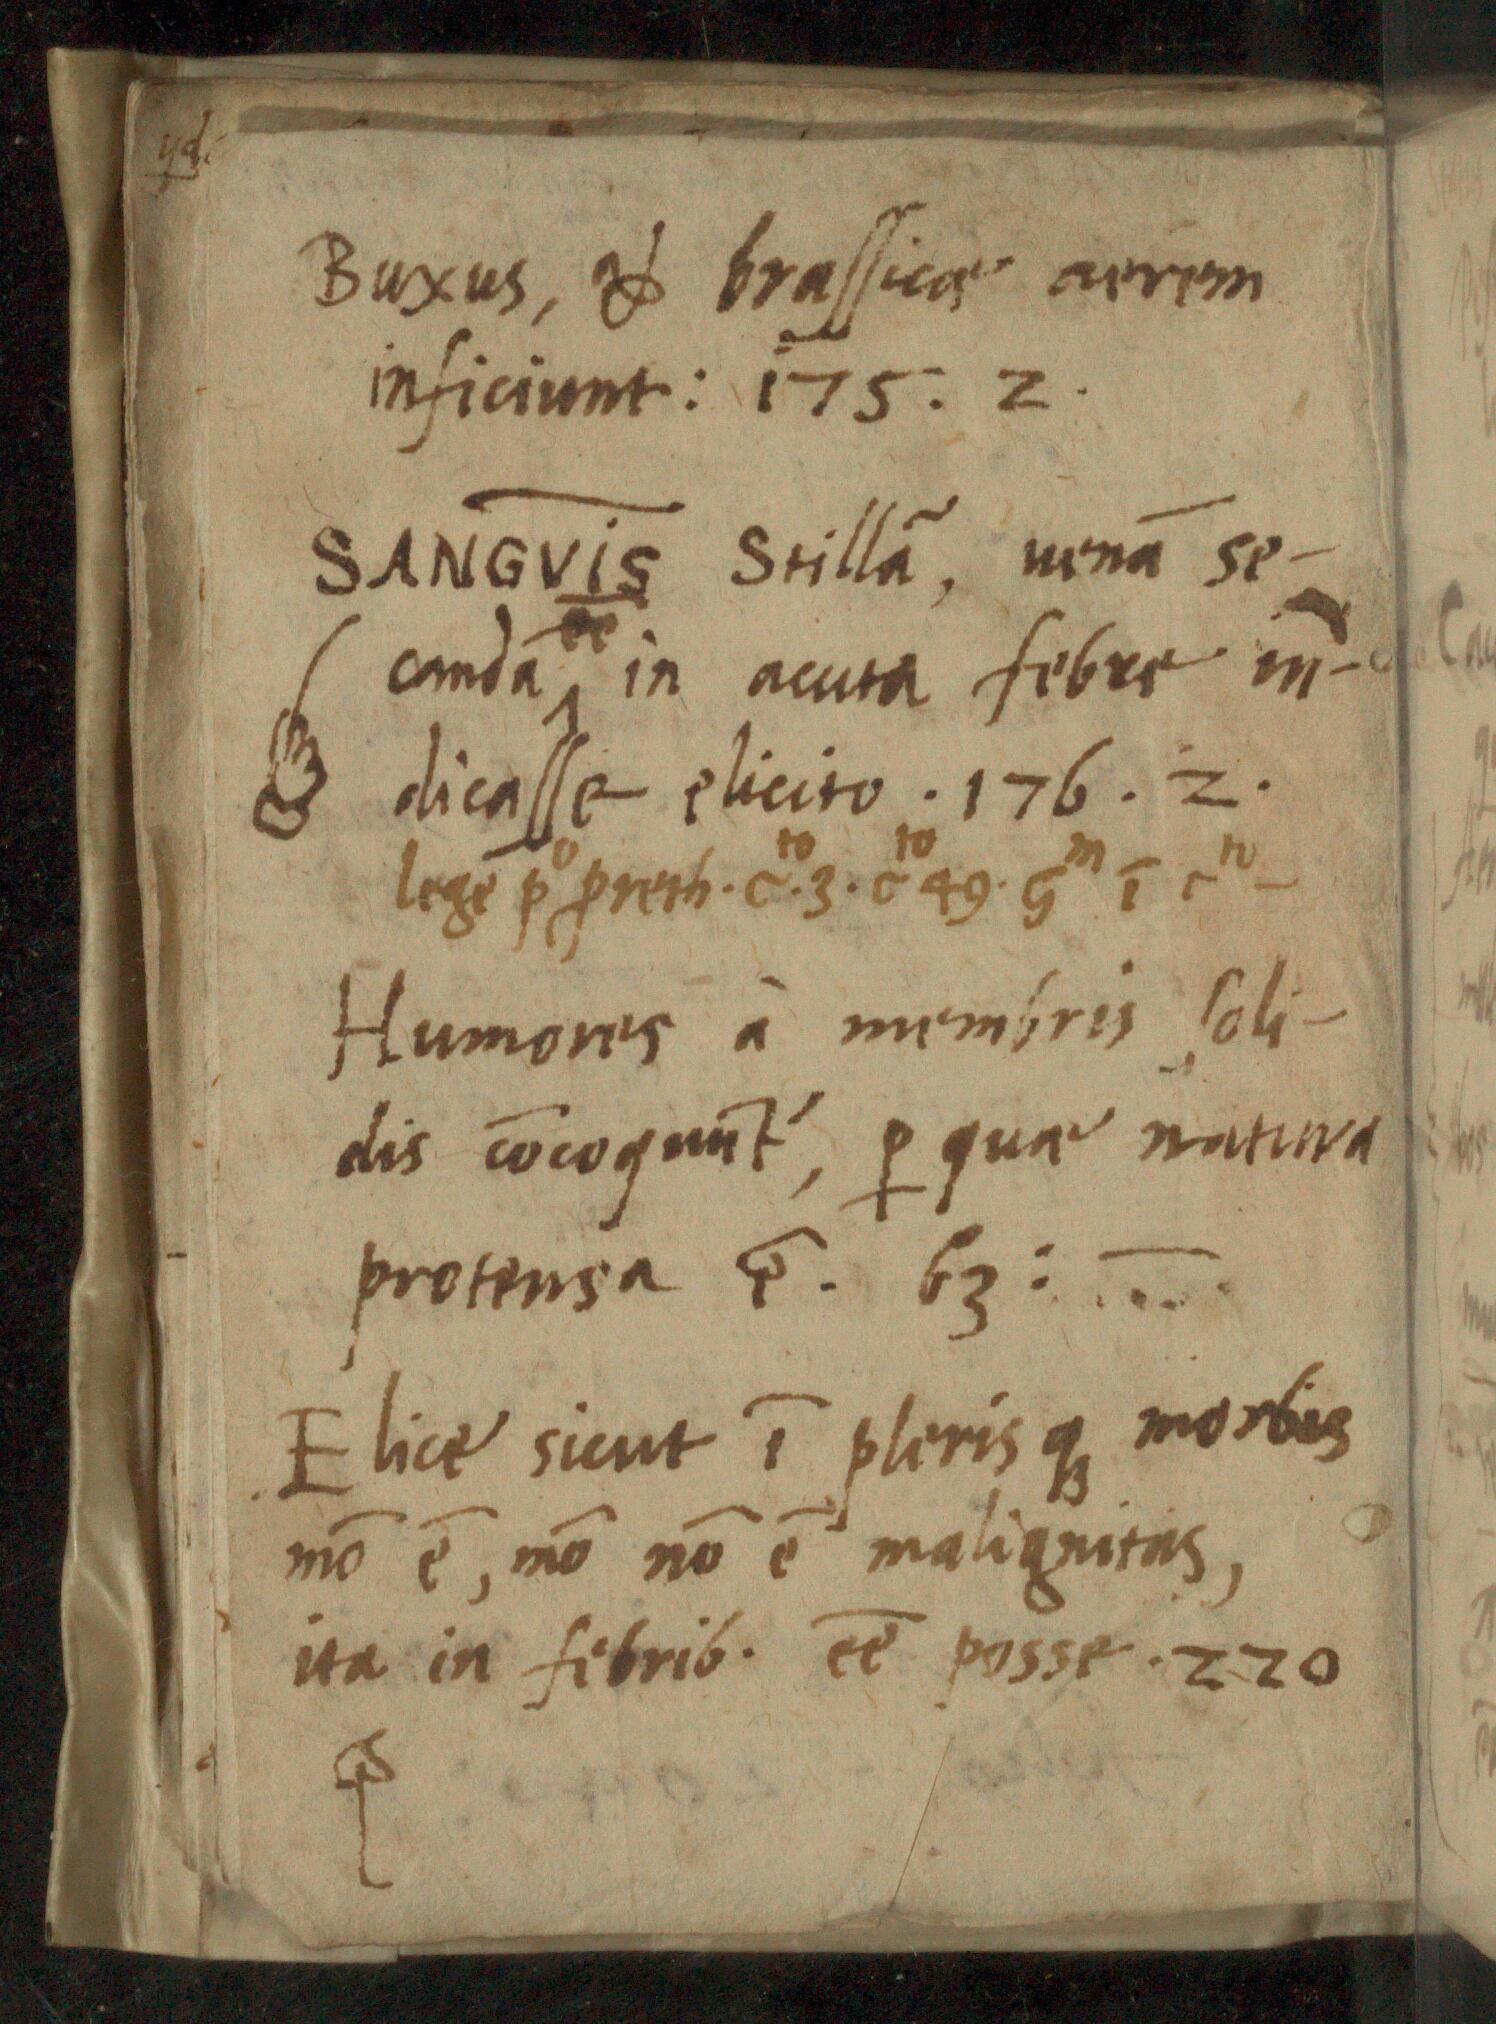 Buxus, & brassicæ aerem
inficiunt: 175. 2.
SANGVIS Stillā, uenā se-
candā ēē in acuta febre in-
dicasse elicito. 176. 2.
legē pº ꝓreth. c̄.to 3. cto 49. ī cto -
Humores à membris soli-
dis cōcoquūt, ꝑ quæ natura
protensa ē. 63: ....
Elice sicut ī plerisqꝫ morbis
mō ē, mō nō ē malignitas,
ita in febrib. ēē posse. 220